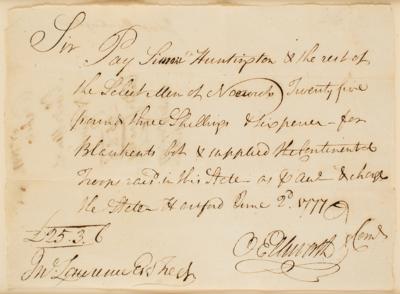 Sir Pay Simn Huntington & the rest of
the Select Men of Norwich Twenty five
pounds three Shillings & Six pence – for
Blankents bot & supplied the Continental
Troops raisd in this State – as & charge
the State Hartford June 2d. 1777
£25.3.6
OEllsworth Comtt
Jno Lawrence Esqr Treasr